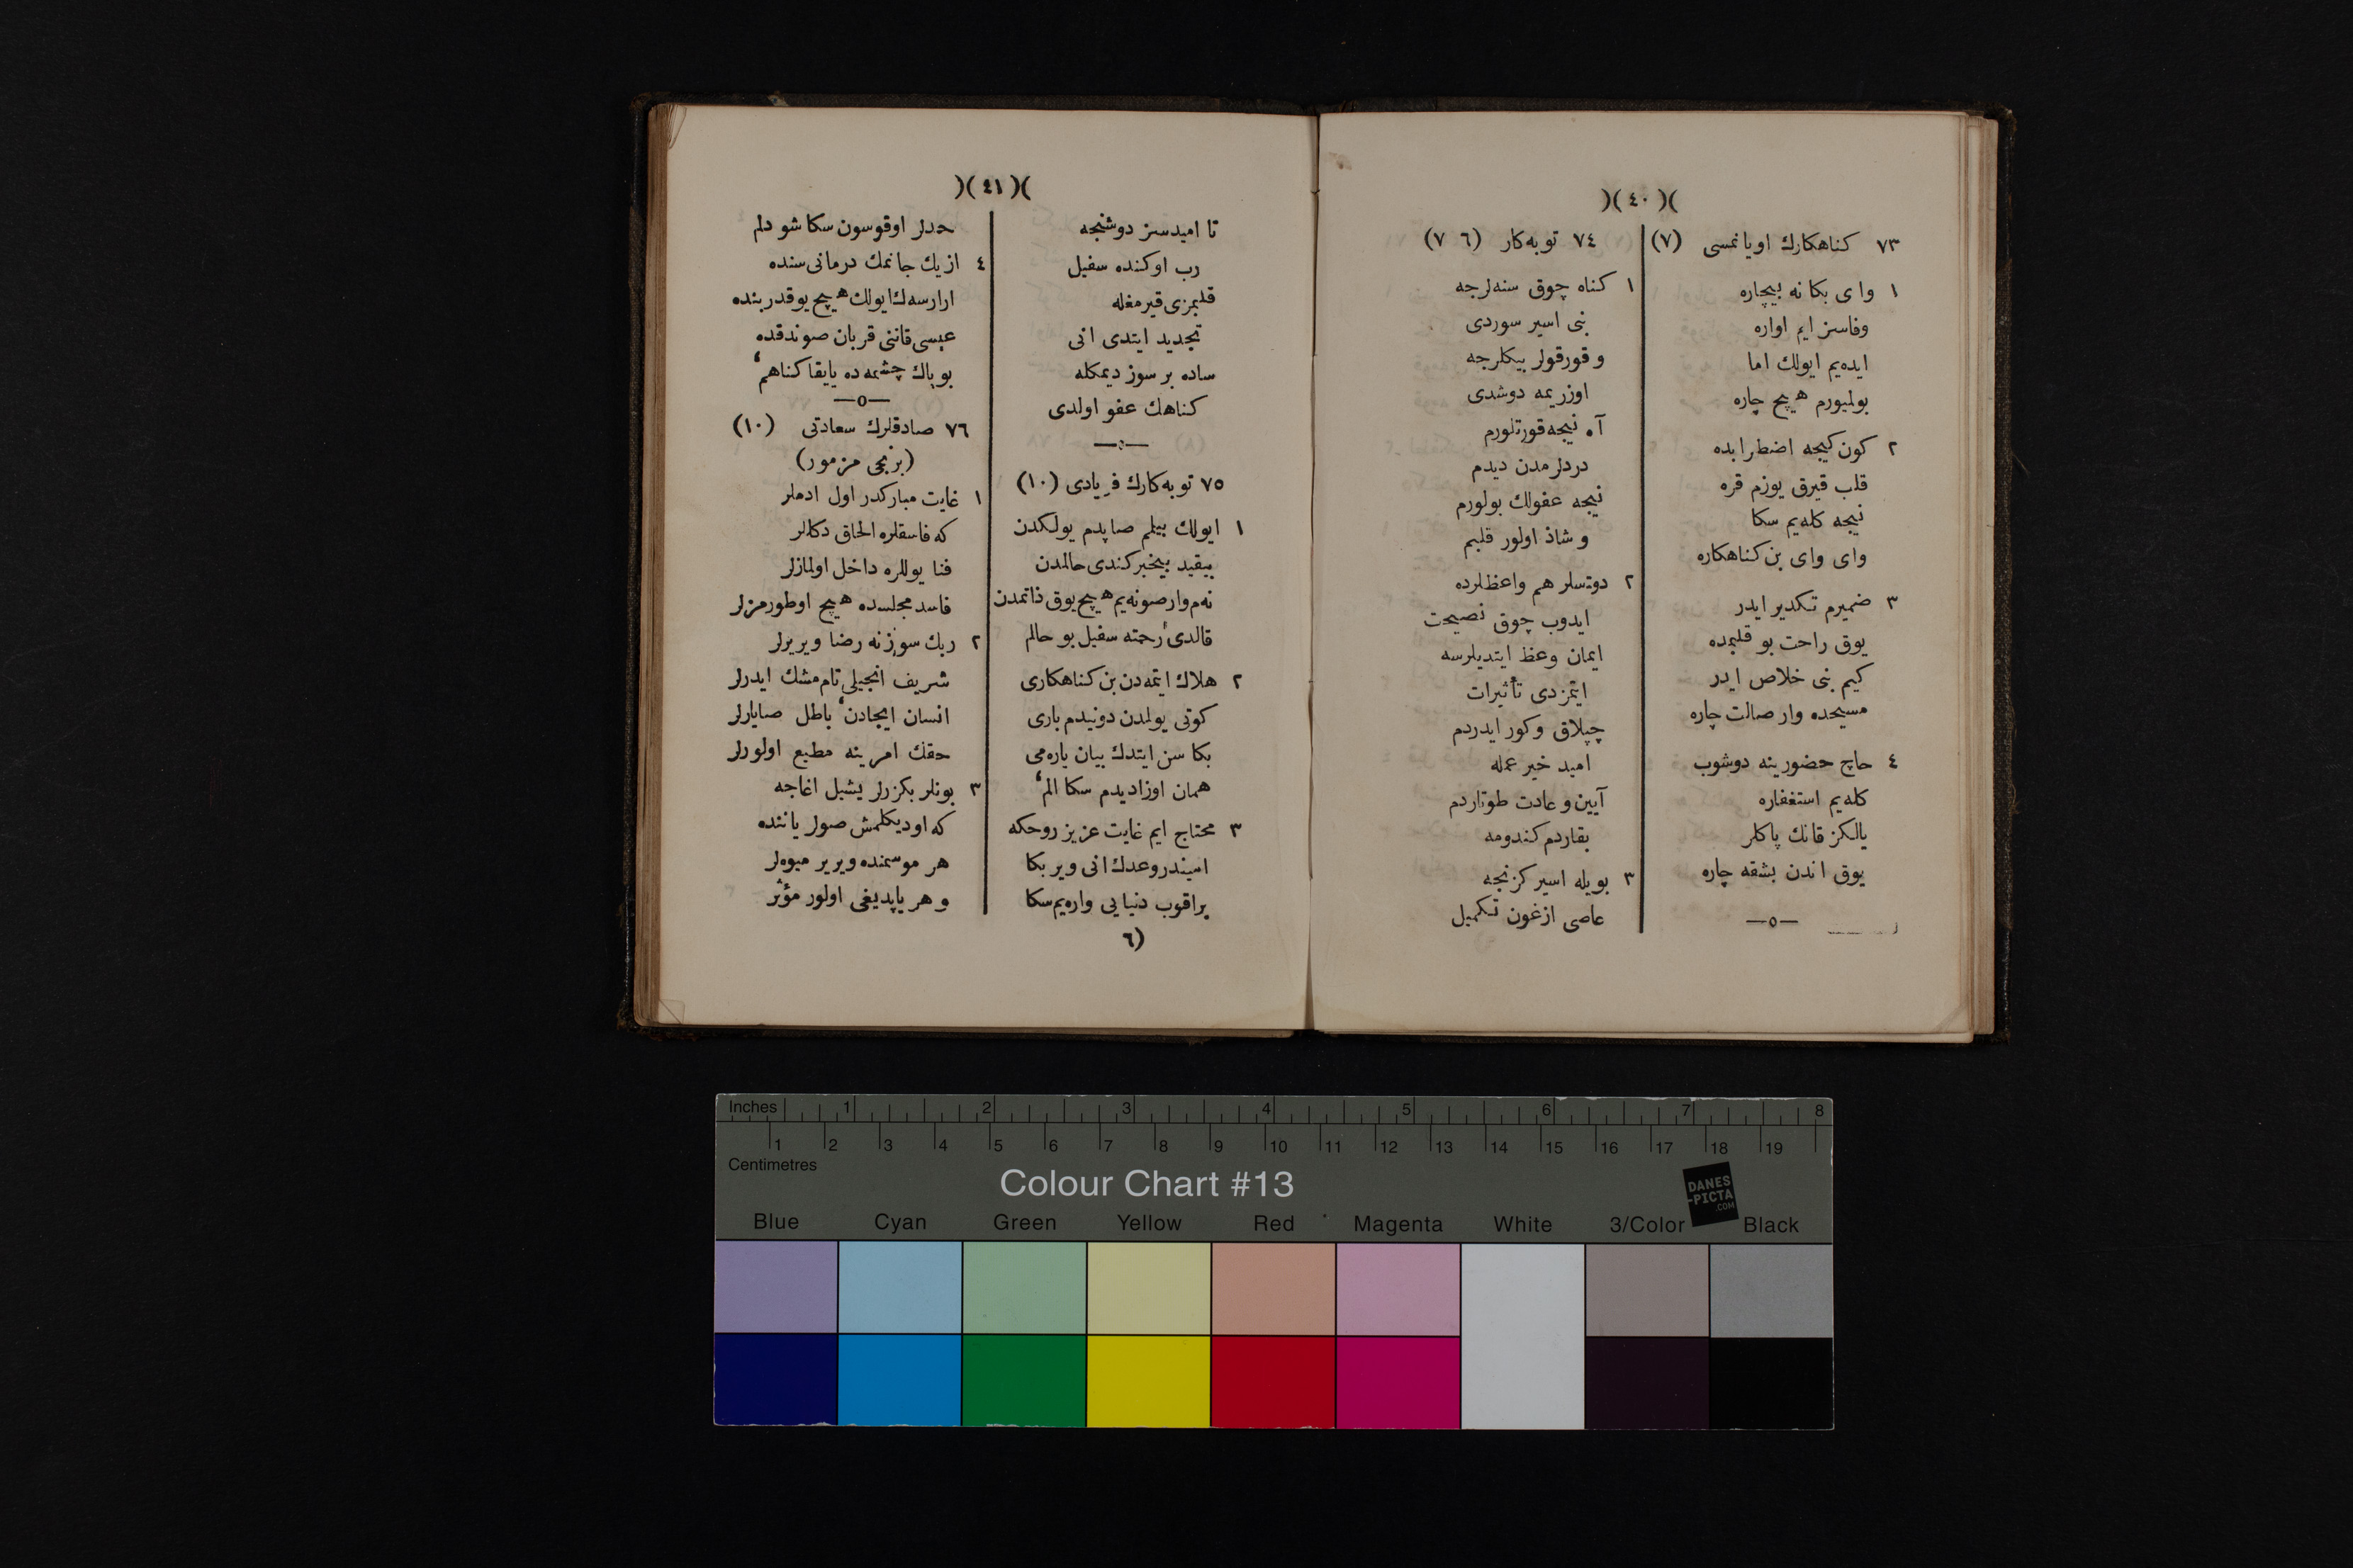 )(٤٠)(
٧٣ كناهكارك اويانمسی (٧)
١ وای بكا نه بيچاره
وفاسز ايم اواره
ايده‌يم ايولك اما
بولميورم هيچ چاره
٢ كون كيجه اضطرابده
قلب قيرق يوزم قره
نيجه كله‌يم سكا
وای وای بن كناهكاره
٣ ضميرم تكدير ايدر
يوق راحت بو قلبمده
كيم بنی خلاص ايدر
مسيحده وار صالت چاره
٤ حاچ حضورينه دوشوب
كله‌يم استغفاره
يالكز قانك پاكلر
يوق اندن بشقه چاره
—٥—
٧٤ توبه‌كار (٦ ٧)
١ كناه چوق سنه‌لرجه
بنی اسير سوردی
وقورقولر بيكلرجه
اوزريمه دوشدی
آه نيجه قورتلورم
دردلرمدن ديدم
نيجه عفولك بولورم
وشاذ اولور قلبم
٢ دوتسلر هم واعظلرده
ايدوب چوق نصيحت
ايمان وعظ ايتديلرسه
ايتمزدی تأثيرات
چپلاق وكور ايدردم
اميد خير عمله
آيين وعادت طوتاردم
بقاردم كندومه
٣ بويله اسير كزنجه
عاصی ازغون تكميل
)(٤١)(
تا اميدسز دوشنجه
رب اوكنده سفيل
قلبمزی قيرمغله
تجديد ايتدی انی
ساده بر سوز ديمكله
كناهك عفو اولدی
—٥—
٧٥ توبه‌كارك فريادی (١٠)
١ ايولك بيلم صاپدم يولكدن
بيقيد بيخبر كندی حالمدن
نه‌م وار صونه‌يم هيچ يوق ذاتمدن
قالدی رحمته سفيل بو حالم
٢ هلاك ايتمه‌دن بن كناهكاری
كوتی يولمدن دونيدم باری
بكا سن ايتدك بيان ياره‌می
همان اوزاديدم سكا الم
٣ محتاج ايم غايت عزيز روحكه
اميندر وعدك انی وير بكا
براقوب دنيايی واره‌يم سكا
(٦
حمدلر اوقوسون سكا شو دلم
٤ ازيك جانمك درمانی سنده
ارارسه‌ك ايولك هيچ يوقدر بنده
عيسی قاننی قربان صوندقده
بو پاك چشمه‌ده يايقا كناهم
—٥—
٧٦ صادقلرك سعادتی (١٠)
(برنجی مزمور)
١ غايت مباركدر اول ادملر
كه فاسقلره الحاق دكللر
فنا يوللره داخل اولمازلر
فاسد مجلسده هيچ اوطورمزلر
٢ ربك سوزنه رضا ويريرلر
شريف انجيلی تام مشك ايدرلر
انسان ايجادن باطل صايارلر
حقك امرينه مطيع اولورلر
٣ بونلر بكزرلر يشيل اغاجه
كه اوديكلمش صولر ياننده
هر موسمنده ويرير ميوه‌لر
وهر ياپديغی اولور مؤثر
Inches 1 2 3 4 5 6 7 8
1 2 3 4 5 6 7 8 9 10 11 12 13 14 15 16 17 18 19
Centimetres
Colour Chart #13
DANES
-PICTA
.COM
Blue Cyan Green Yellow Red Magenta White 3/Color Black